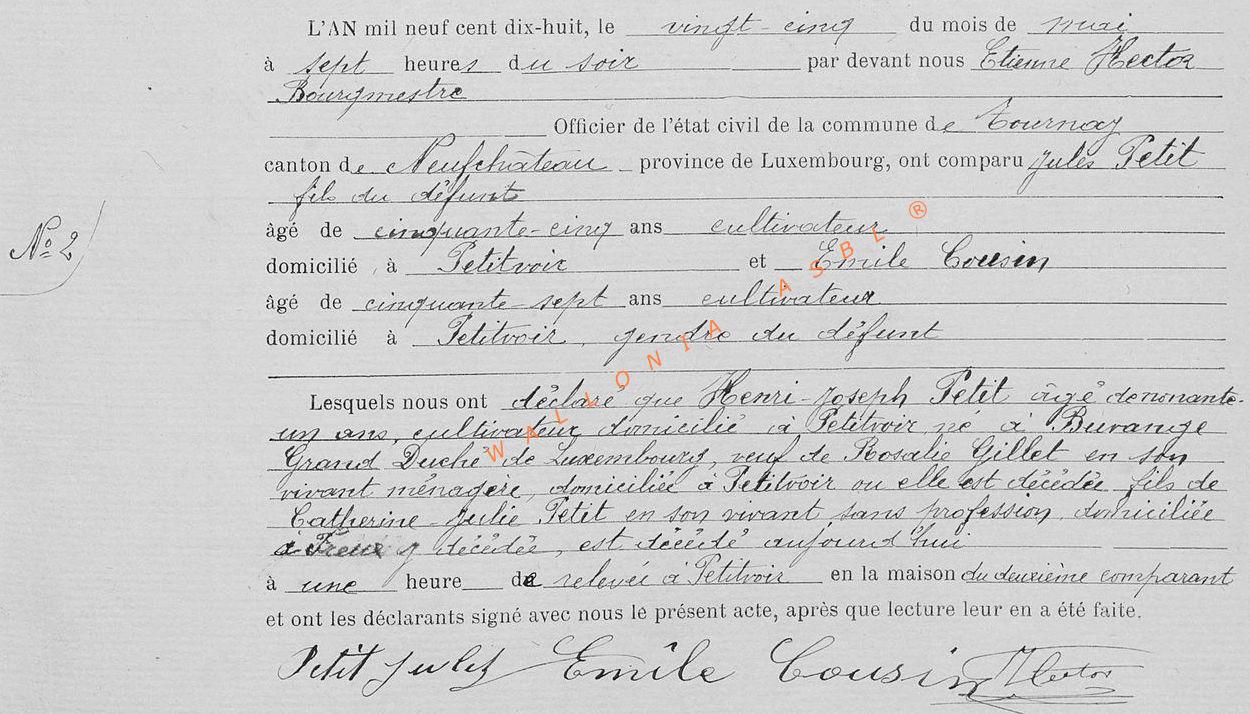 L'AN mil neuf cent dix-huit, le vingt-cinq du mois de mai
à sept heures du soir par devant nous Etienne Hector
Bourgmestre
Officier de l'état civil de la commune de Tournay
canton de Neufchâteau province de Luxembourg, ont comparu Jules Petit
fils du défunt
âgé de cinquante-cinq ans cultivateur
N° 2
domicilié à Petitvoir et Emile Cousin
âgé de cinquante-sept ans cultivateur
domicilié à Petitvoir, gendre du défunt
Lesquels nous ont déclaré que Henri-Joseph Petit âgé de nonante-
un ans, cultivateur domicilié à Petitvoir né à Buvange
Grand Duché de Luxembourg, veuf de Rosalie Gillet en son
vivant ménagère, domiciliée à Petitvoir ou elle est décédée fils de
Catherine-Julie Petit en son vivant sans profession domiciliée
à y décédée, est décédé aujourd'hui
à une heure de relevée à Petitvoir en la maison du deuxième comparant
et ont les déclarants signé avec nous le présent acte, après que lecture leur en a été faite.
Petit Jules Emile Cousin Hector
WALLONIA ASBL ®